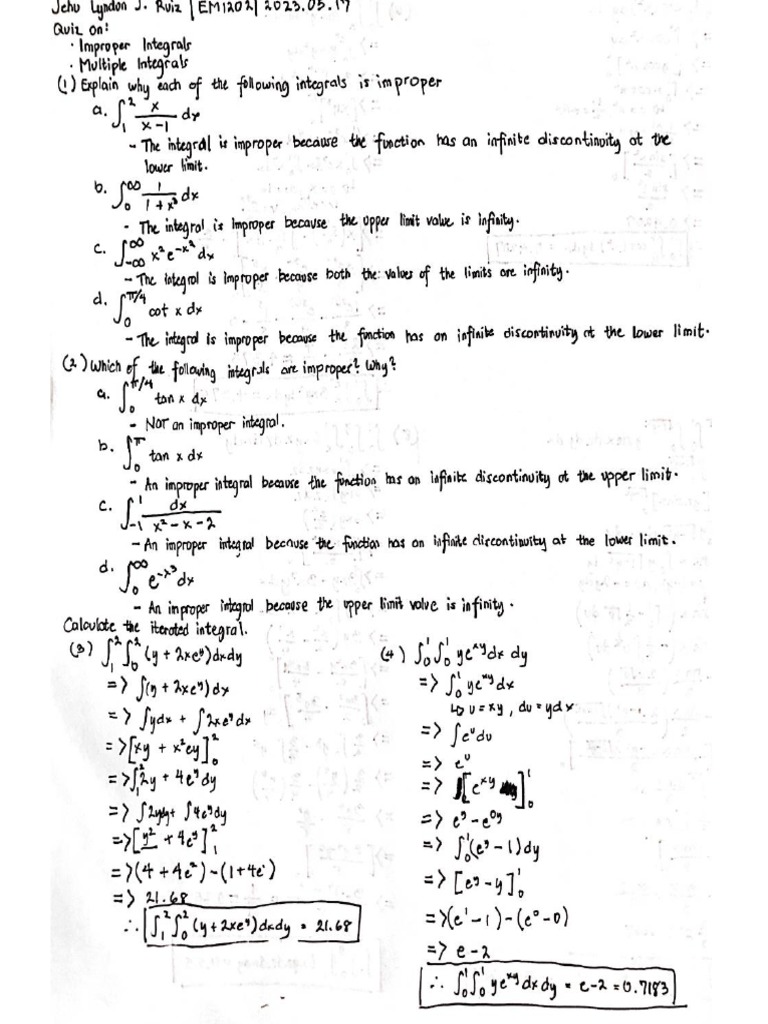 Jehu Lyndon J. Ruiz | EM1202 | 2023.05.17
Quiz on:
• Improper Integrals
• Multiple Integrals
(1) Explain why each of the following integrals is improper
a. ∫₁² x/(x-1) dx
- The integral is improper because the function has an infinite discontinuity at the
lower limit.
b. ∫₀^∞ 1/(1+x³) dx
- The integral is improper because the upper limit value is infinity.
c. ∫₋∞^∞ x²e^(-x²) dx
- The integral is improper because both the values of the limits are infinity.
d. ∫₀^(π/4) cot x dx
- The integral is improper because the function has an infinite discontinuity at the lower limit.
(2) Which of the following integrals are improper? Why?
a. ∫₀^(π/4) tan x dx
- Not an improper integral.
b. ∫₀^π tan x dx
- An improper integral because the function has an infinite discontinuity at the upper limit.
c. ∫₋₁¹ dx/(x²-x-2)
- An improper integral because the function has an infinite discontinuity at the lower limit.
d. ∫₀^∞ e^(-x³) dx
- An improper integral because the upper limit value is infinity.
Calculate the iterated integral.
(3) ∫₁² ∫₀² (y + 2xe^y) dx dy
=> ∫(y + 2xe^y) dx
=> ∫y dx + ∫2xe^y dx
=> [xy + x²ey]₀²
=> ∫₁² 2y + 4e^y dy
=> ∫2y dy + ∫4e^y dy
=> [y² + 4e^y]₁²
=> (4 + 4e²) - (1 + 4e¹)
=> 21.68
∴ ∫₁² ∫₀² (y + 2xe^y) dx dy = 21.68
(4) ∫₀¹ ∫₀¹ ye^(xy) dx dy
=> ∫₀¹ ye^(xy) dx
↳ u = xy, du = y dx
=> ∫e^u du
=> e^u
=> [e^(xy)]₀¹
=> e^y - e^(0y)
=> ∫₀¹ (e^y - 1) dy
=> [e^y - y]₀¹
=> (e¹ - 1) - (e⁰ - 0)
=> e - 2
∴ ∫₀¹ ∫₀¹ ye^(xy) dx dy = e - 2 = 0.7183